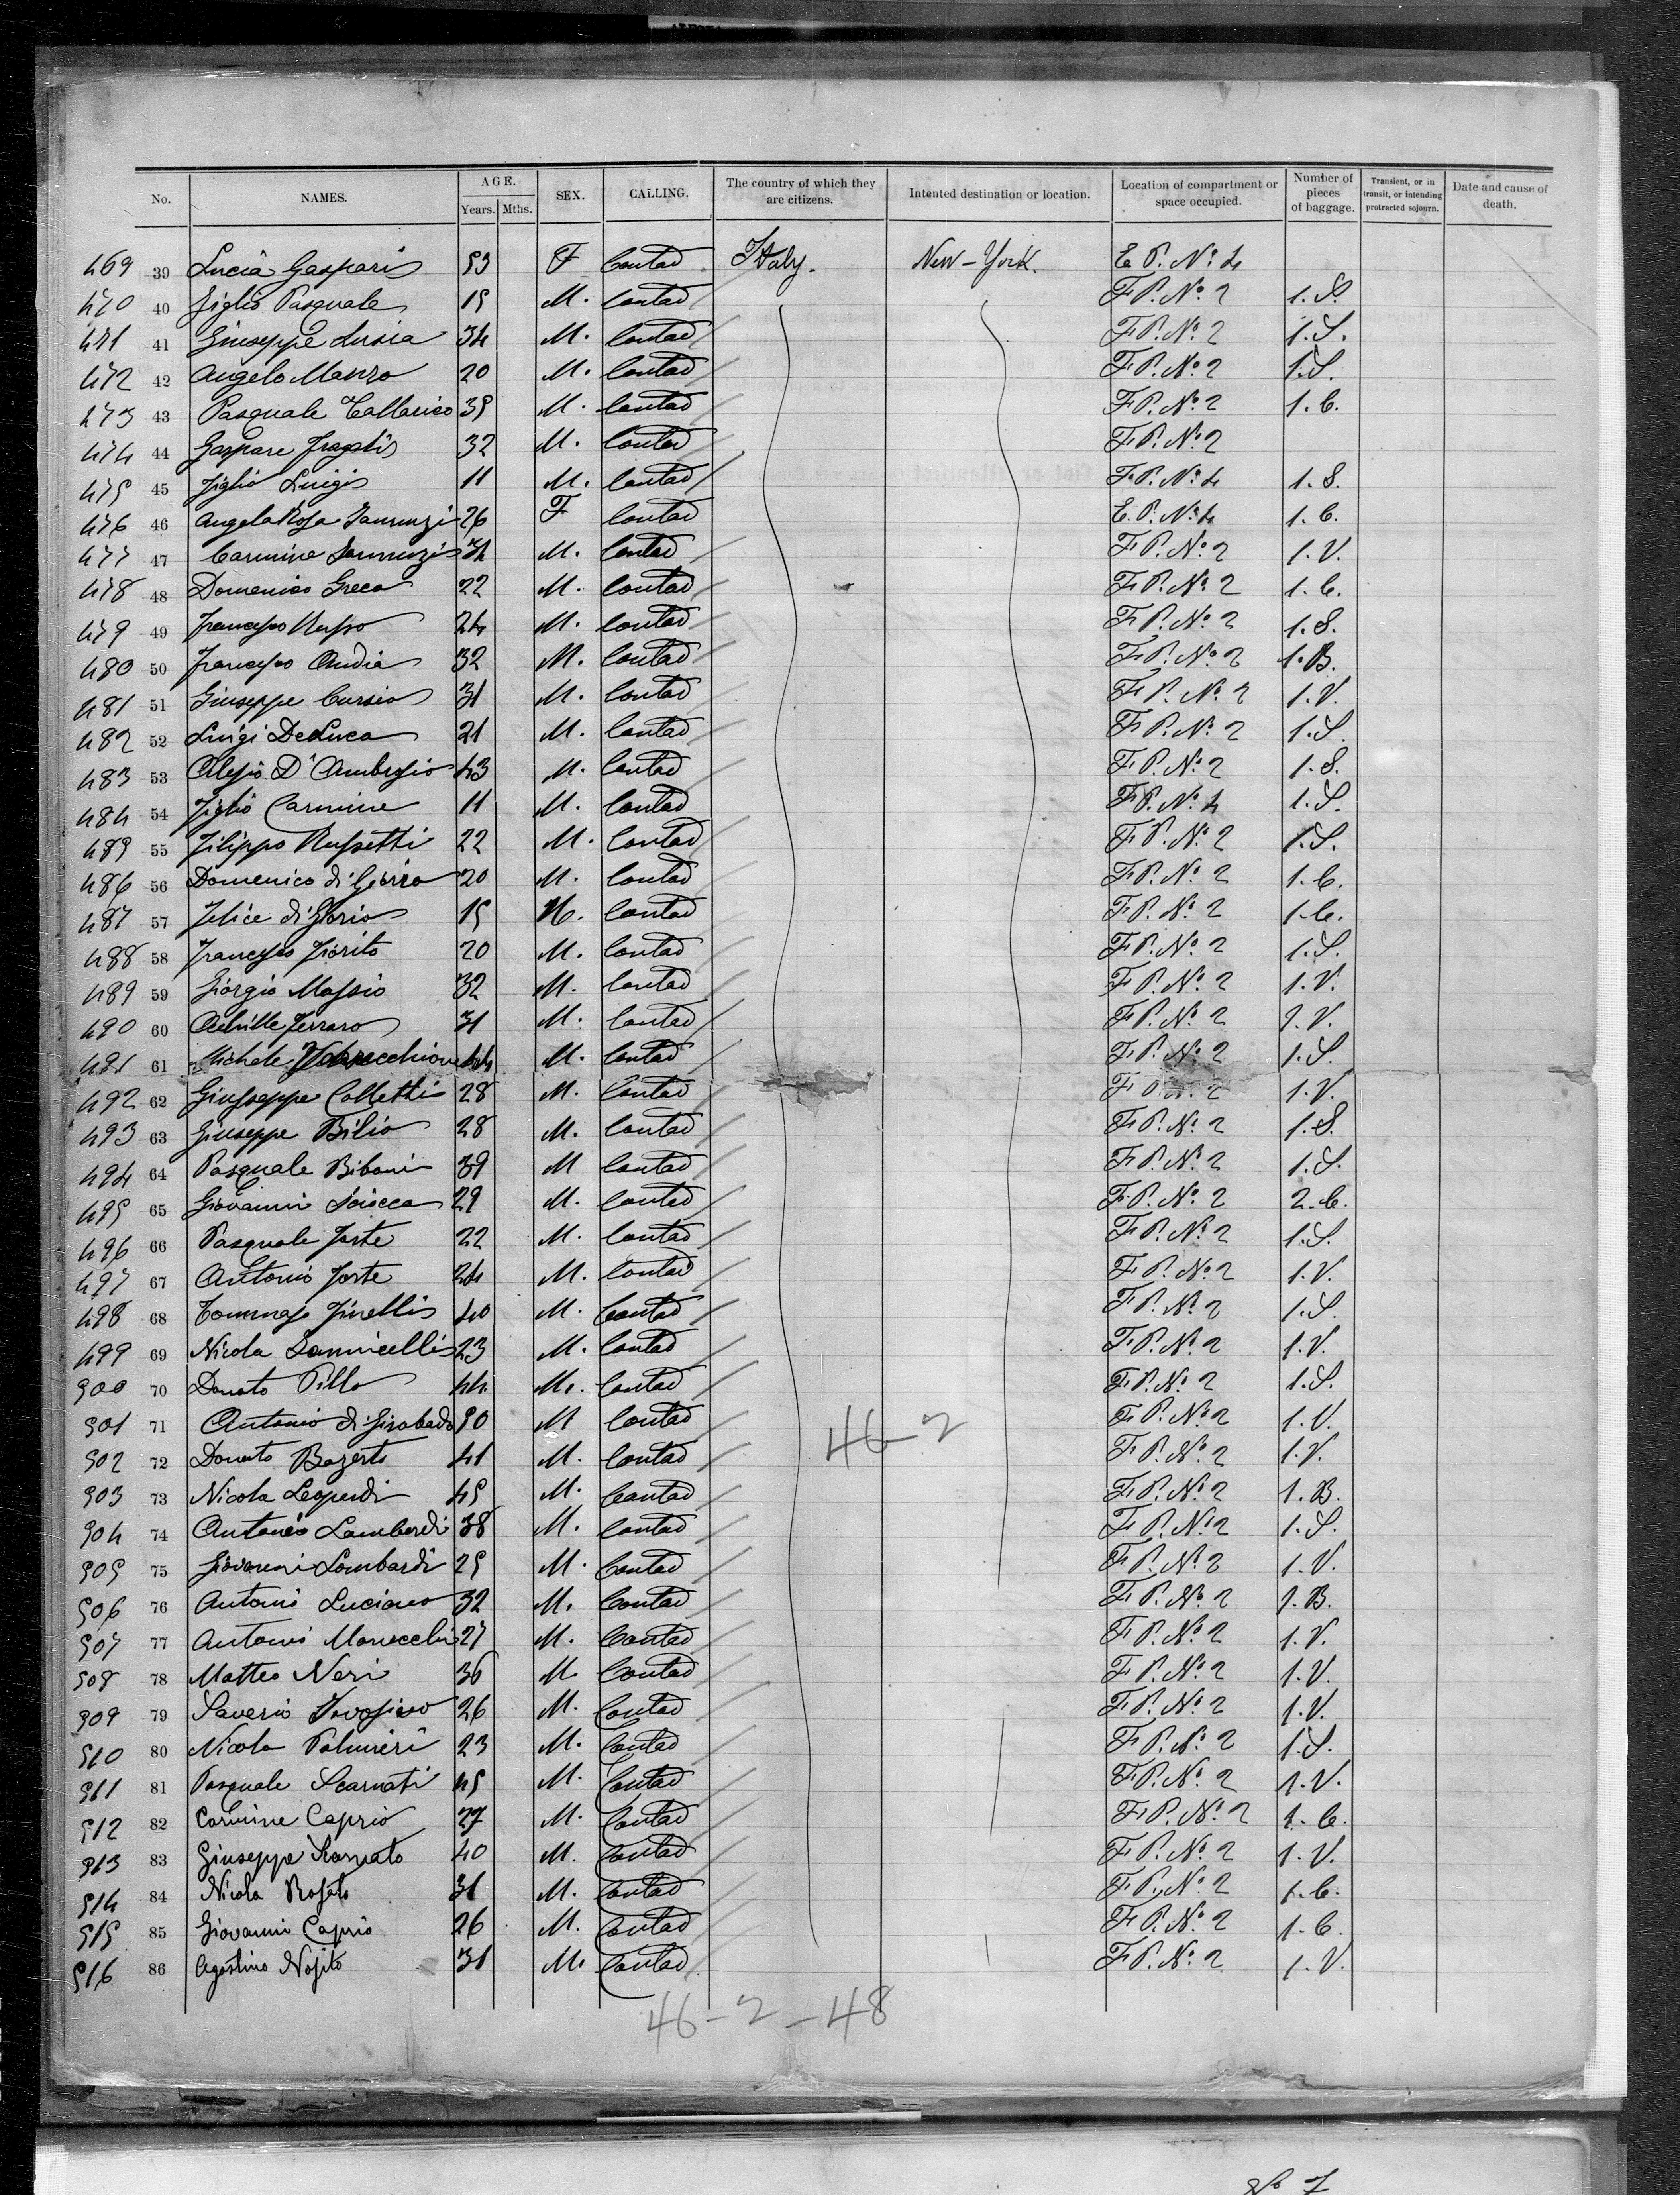 No. NAMES. AGE. Years. Mths. SEX. CALLING. The country of which they are citizens. Intented destination or location. Location of compartment or space occupied. Number of pieces of baggage. Transient, or in transit, or intending protracted sojourn. Date and cause of death.
469 39 Lucia Gaspari 53 F Contad Italy. New-York. E P. No. 4
470 40 Figlio Pasquale 15 M. Contad F P. No. 2 1. S.
471 41 Giuseppe 34 M. Contad F P. No. 2 1. S.
472 42 Angelo Manzo 20 M. Contad F P. No. 2 1. S.
473 43 Pasquale Tallarico 35 M. Contad F P. No. 2 1. C.
474 44 Gaspare 32 M. Contad F P. No. 2
475 45 Figlio Luigi 11 M. Contad F. P. No. 4 1. S.
476 46 Angela Rosa 26 F Contad E. P. No. 4 1. C.
477 47 Carmine M. Contad F P. No. 2 1. V.
478 48 Domenico Greco 22 M. Contad F P. No. 2 1. C.
479 49 Francesco Russo 24 M. Contad F P. No. 2 1. S.
480 50 Francesco 32 M. Contad F P. No. 2 1. B.
481 51 Giuseppe Cursio 31 M. Contad F P. No. 2 1. V.
482 52 Luigi DeLuca 21 M. Contad F P. No. 2 1. S.
483 53 Alesio D'Ambrosio 43 M. Contad F P. No. 2 1. S.
484 54 Figlio Carmine 11 M. Contad F P. No. 4 1. S.
485 55 Filippo Russetti 22 M. Contad F P. No. 2 1. S.
486 56 Domenico di 20 M. Contad F P. No. 2 1. C.
487 57 Felice di 15 M. Contad F P. No. 2 1. C.
488 58 Francesco Fiorito 20 M. Contad F P. No. 2 1. S.
489 59 Giorgio Massio 32 M. Contad F P. No. 2 1. V.
490 60 Achille Ferraro 31 M. Contad F P. No. 2 1. V.
491 61 Michele 44 M. Contad F P. No. 2 1. S.
492 62 Giusseppe Colletti 28 M. Contad F P. No. 2 1. V.
493 63 Giuseppe Bilio 28 M. Contad F P. No. 2 1. S.
494 64 Pasquale Biboni 39 M Contad F P. No. 2 1. S.
495 65 Giovanni 29 M. Contad F. P. No. 2 2. C.
496 66 Pasquale Forte 22 M. Contad F P. No. 2 1. S.
497 67 Antonio Forte 24 M. Contad F P. No. 2 1. V.
498 68 Tommaso Finelli 40 M. Contad F P. No. 2 1. S.
499 69 Nicola 23 M. Contad F P. No. 2 1. V.
500 70 Donato Pillo 44 M. Contad F P. No. 2 1. S.
501 71 Antonio di 50 M Contad F P. No. 2 1. V.
46-2
502 72 Donato 41 M. Contad F P. No. 2 1. V.
503 73 Nicola Leopardi 45 M. Contad F P. No. 2 1. B.
504 74 Antonio Lombardi 38 M. Contad F P. No. 2 1. S.
505 75 Giovanni Lombardi 25 M. Contad F P. No. 2 1. V.
506 76 Antonio Luciano 32 M. Contad F P. No. 2 1. B.
507 77 Antonio 27 M. Contad F P. No. 2 1. V.
508 78 Matteo Neri 36 M. Contad F P. No. 2 1. V.
509 79 Saverio 26 M. Contad F P. No. 2 1. V.
510 80 Nicola Palmieri 23 M. Contad F P. No. 2 1. S.
511 81 Pasquale Scarnati 45 M. Contad F P. No. 2 1. V.
512 82 Carmine Caprio 27 M. Contad F P. No. 2 1. C.
513 83 Giuseppe 40 M. Contad F P. No. 2 1. V.
514 84 Nicola Rosato 31 M. Contad F P. No. 2 1. C.
515 85 Giovanni Caprio 26 M. Contad F P. No. 2 1. C.
516 86 Agostino Nosito 31 M. Contad F P. No. 2 1. V.
46-2-48